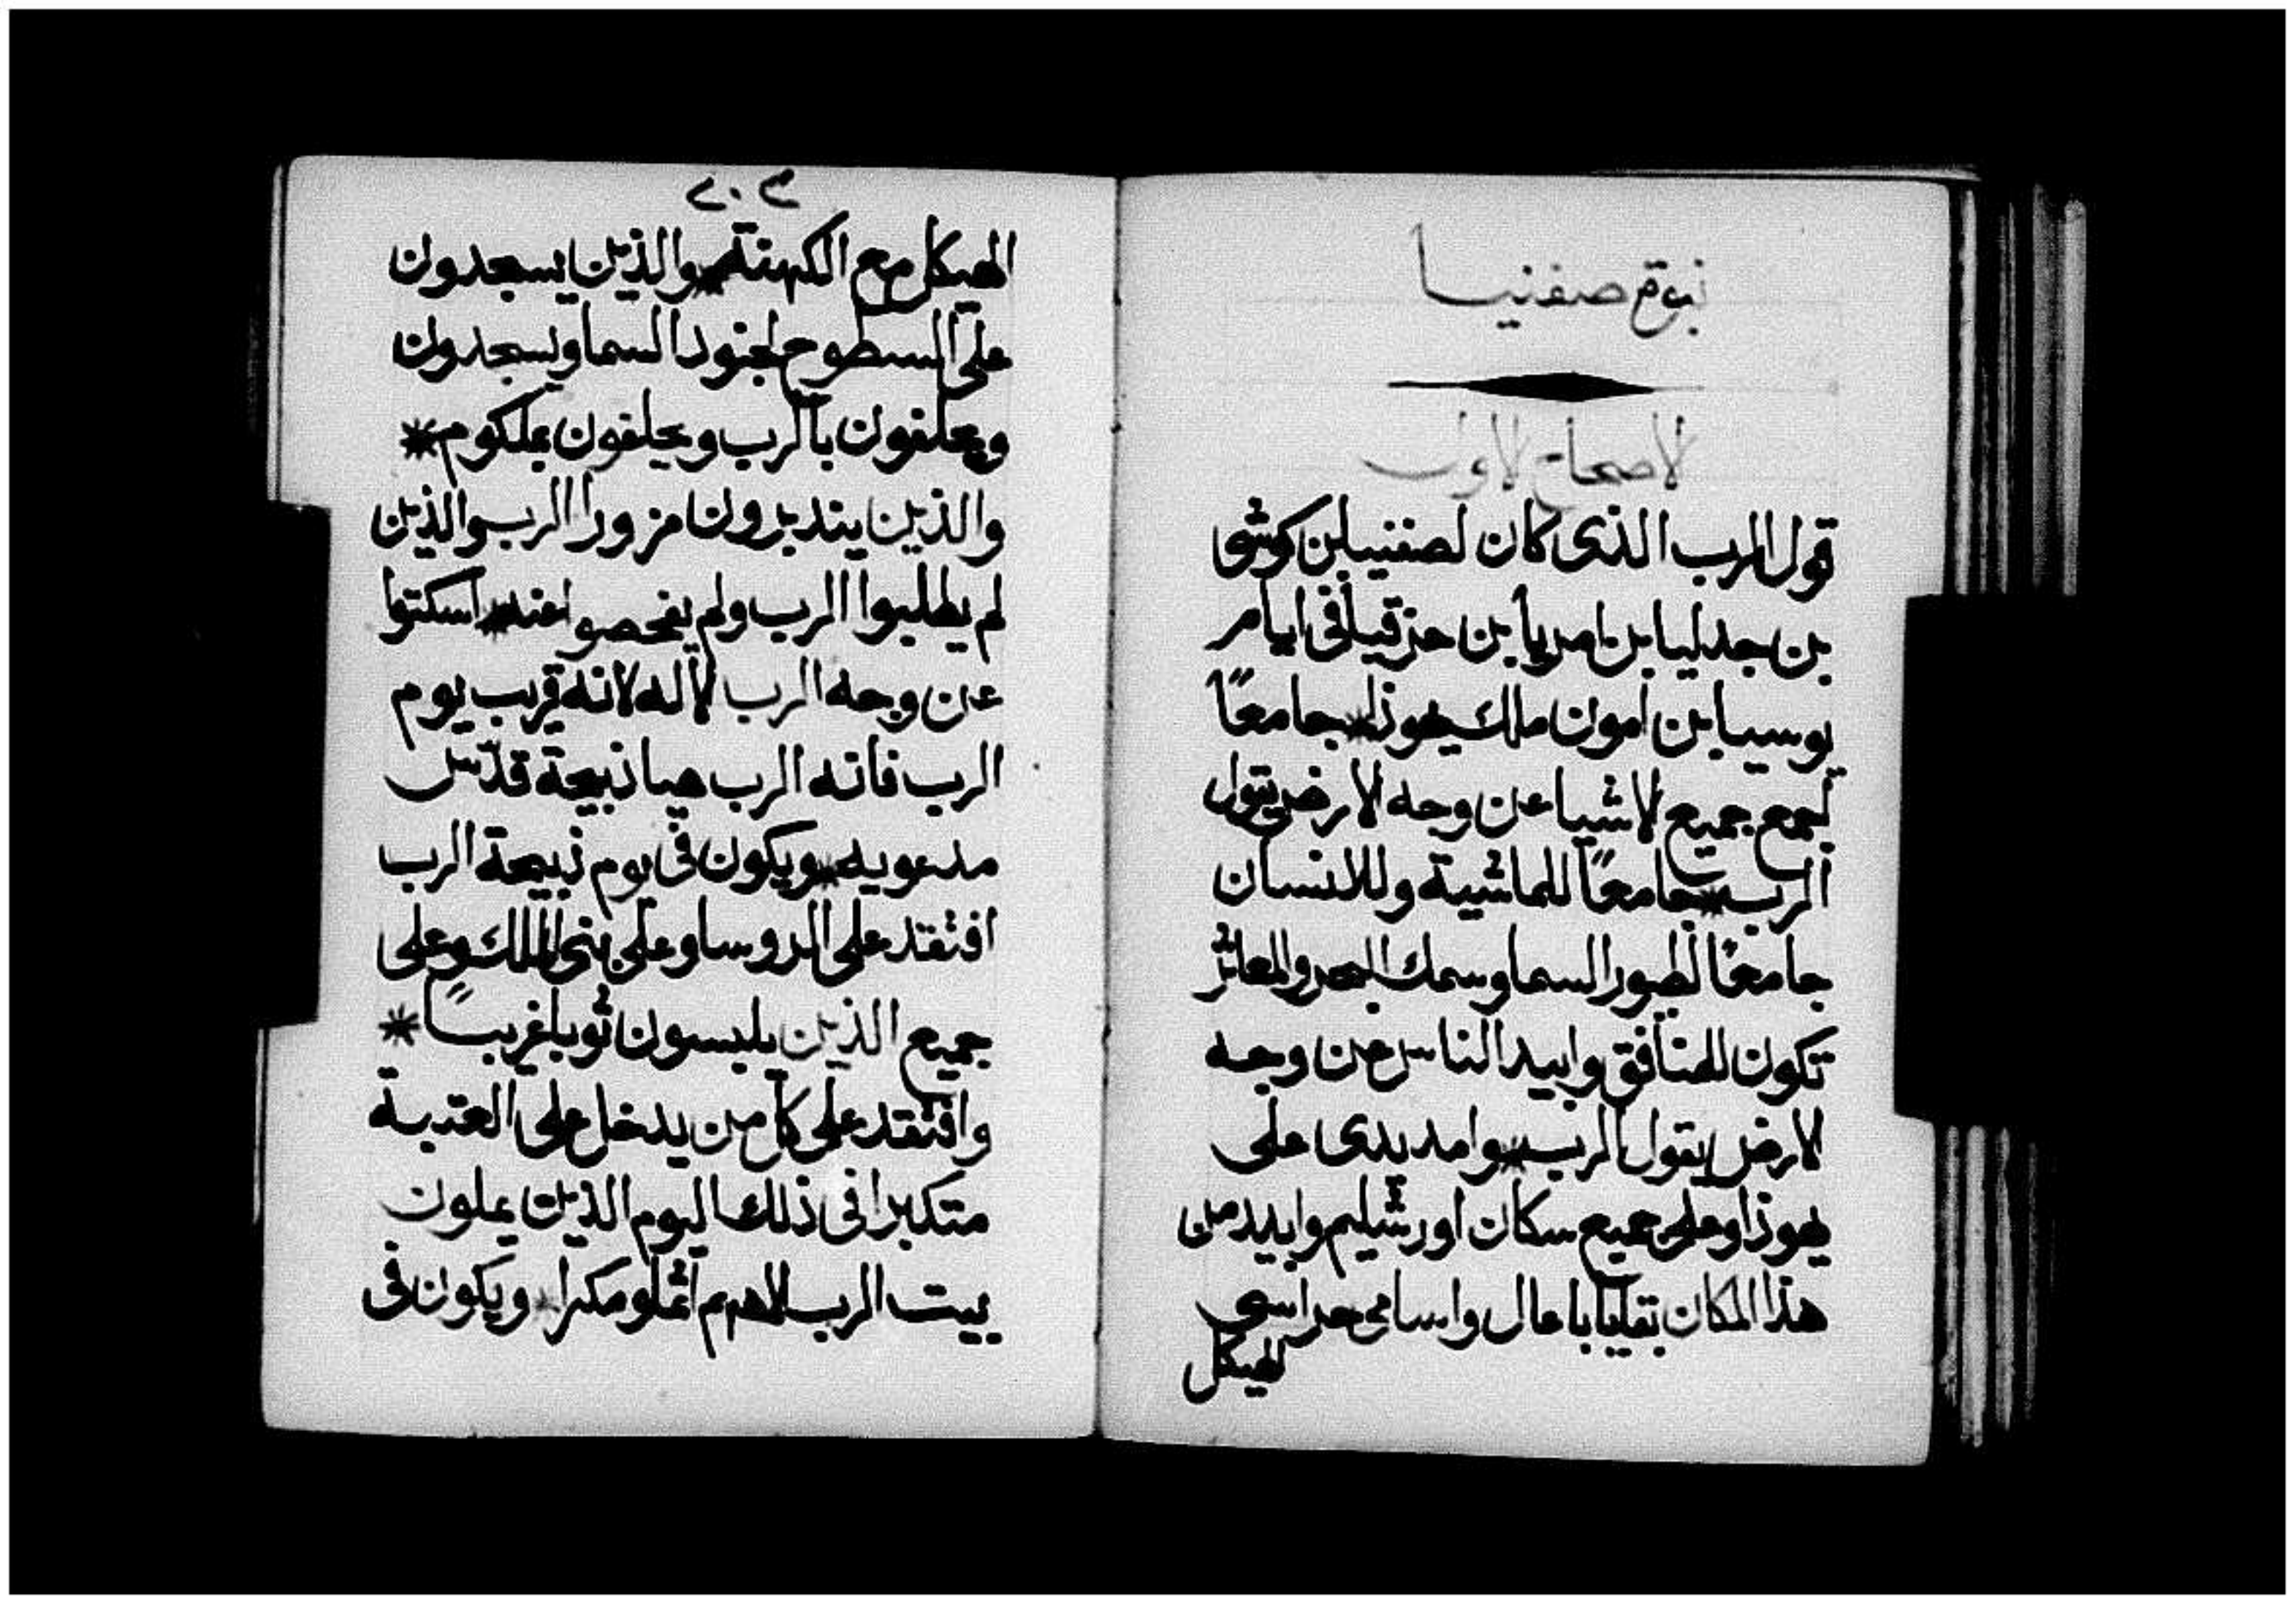 نبوة صفنيا
الاصحاح الاول
قول الرب الذى كان لصفنيا بن كوشى
بن جدليا بن امريا بن حزقيا فى ايام
يوسيا بن امون ملك يهوذا * جامعًا
اجمع جميع الاشيا عن وجه الارض يقول
الرب * جامعًا للماشية وللانسان
جامعًا لطيور السما وسمك البحر والمعاثر
تكون للمنافق وابيد الناس عن وجه
الارض يقول الرب * وامد يدى على
يهوذا وعلى جميع سكان اورشليم وابيد من
هذا المكان بقايا باعال واسامى حراسى
الهيكل
٢٠٣
الهيكل مع الكهنة * والذين يسجدون
على السطوح لجنود السما ويسجدون
ويحلفون بالرب ويحلفون بملكوم *
والذين يتدبرون من ورا الرب والذين
لم يطلبوا الرب ولم يفحصوا عنه * اسكتوا
عن وجه الرب الاله لانه قريب يوم
الرب فانه الرب هيا ذبيحة قدّس
مدعويه * ويكون فى يوم ذبيحة الرب
افتقد على الروسا وعلى بنى الملك وعلى
جميع الذين يلبسون ثوبا غريبًا *
وافتقد على كل من يدخل على العتبة
متكبرا فى ذلك اليوم الذين يملون
بيت الرب الاههم اثما ومكرا * ويكون فى